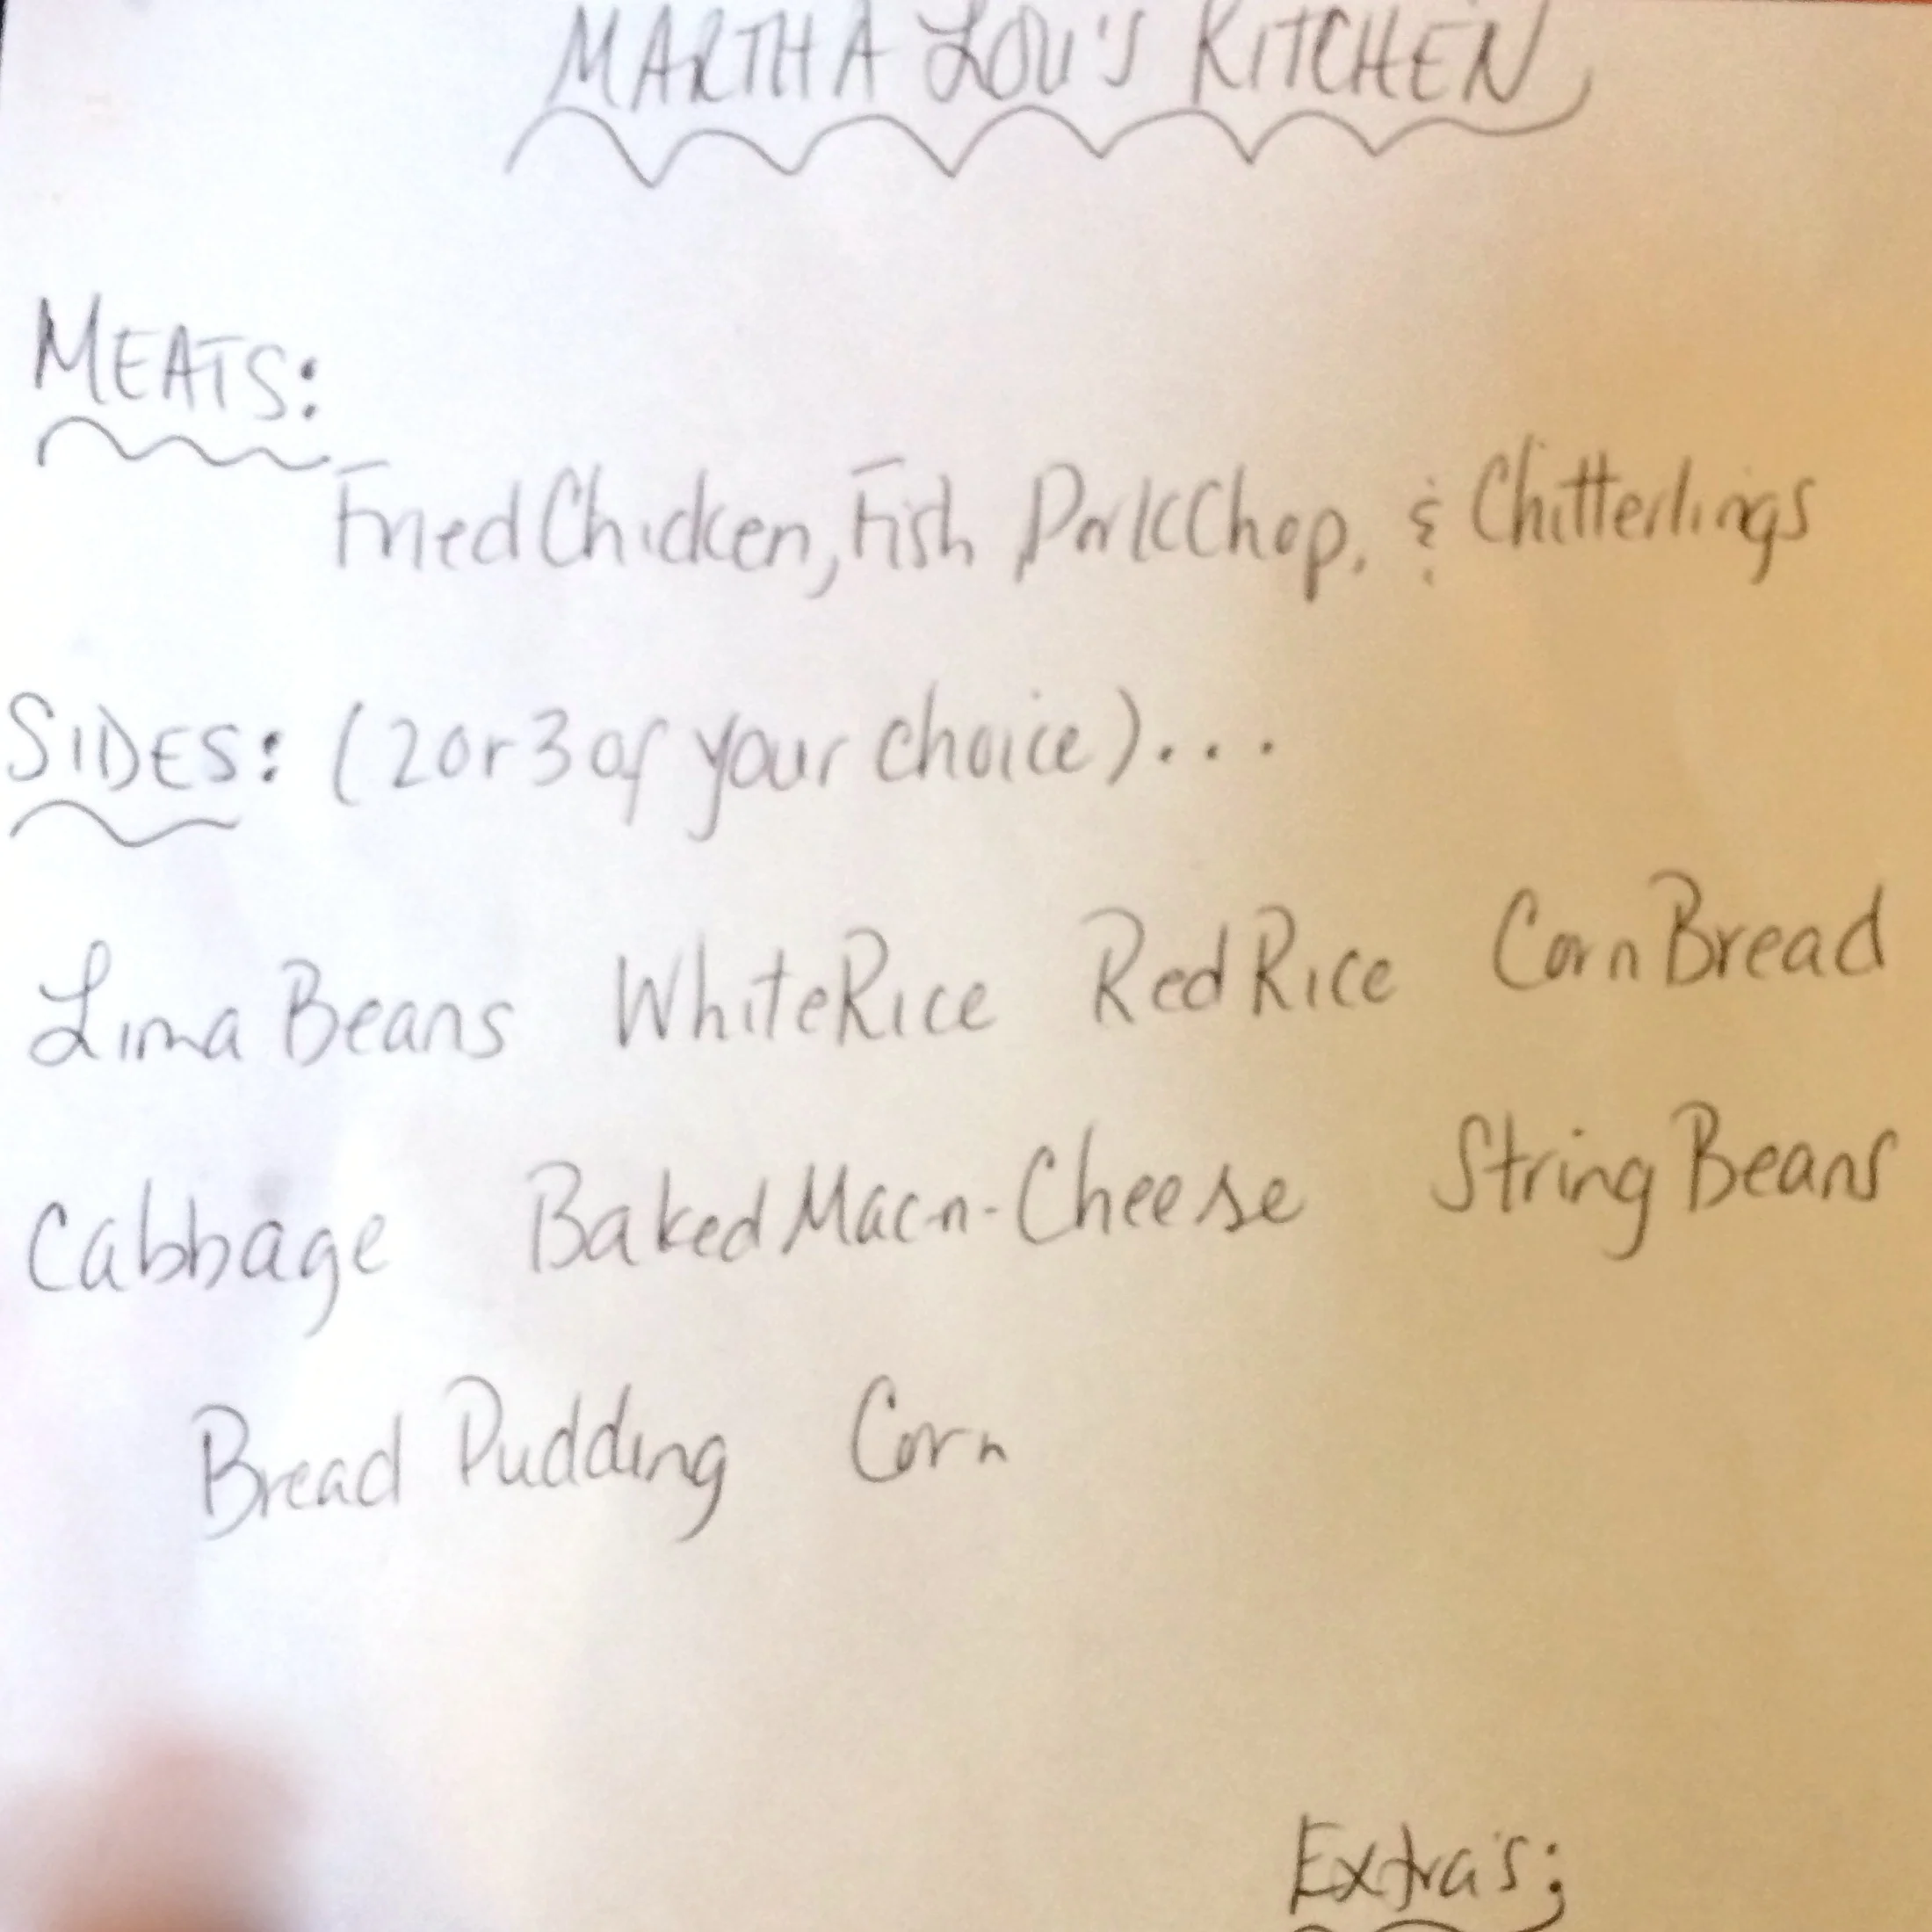 MARTHA LOU'S KITCHEN
MEATS:
Fried Chicken, Fish Pork Chop, & Chitterlings
SIDES: (2 or 3 of your choice)...
Lima Beans White Rice Red Rice Corn Bread
Cabbage Baked Mac-n-Cheese String Beans
Bread Pudding Corn
Extra's: